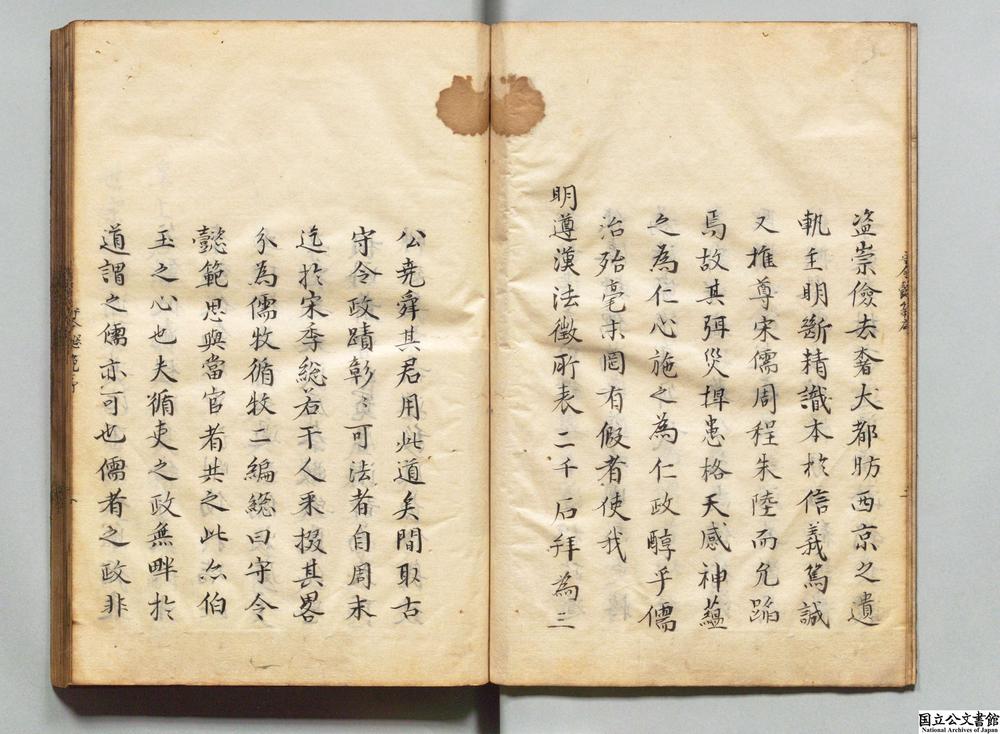 盗崇儉去奢大都昉西京之遺
軌至明斷精識本於信義篤誠
又推尊宋儒周程朱陸而允蹈
焉故其弭災捍患格天感神蘊
之為仁心施之為仁政醇乎儒
治殆毫末罔有假者使我
明遵漢法徵所表二千石拜為三
公堯舜其君用此道矣間取古
守令政蹟彰〻可法者自周末
迄於宋季総若干人采掇其畧
分為儒牧循牧二編総曰守令
懿範思與當官者共之此亦伯
玉之心也夫循吏之政無畔於
道謂之儒亦可也儒者之政非
国立公文書館
National Archives of Japan